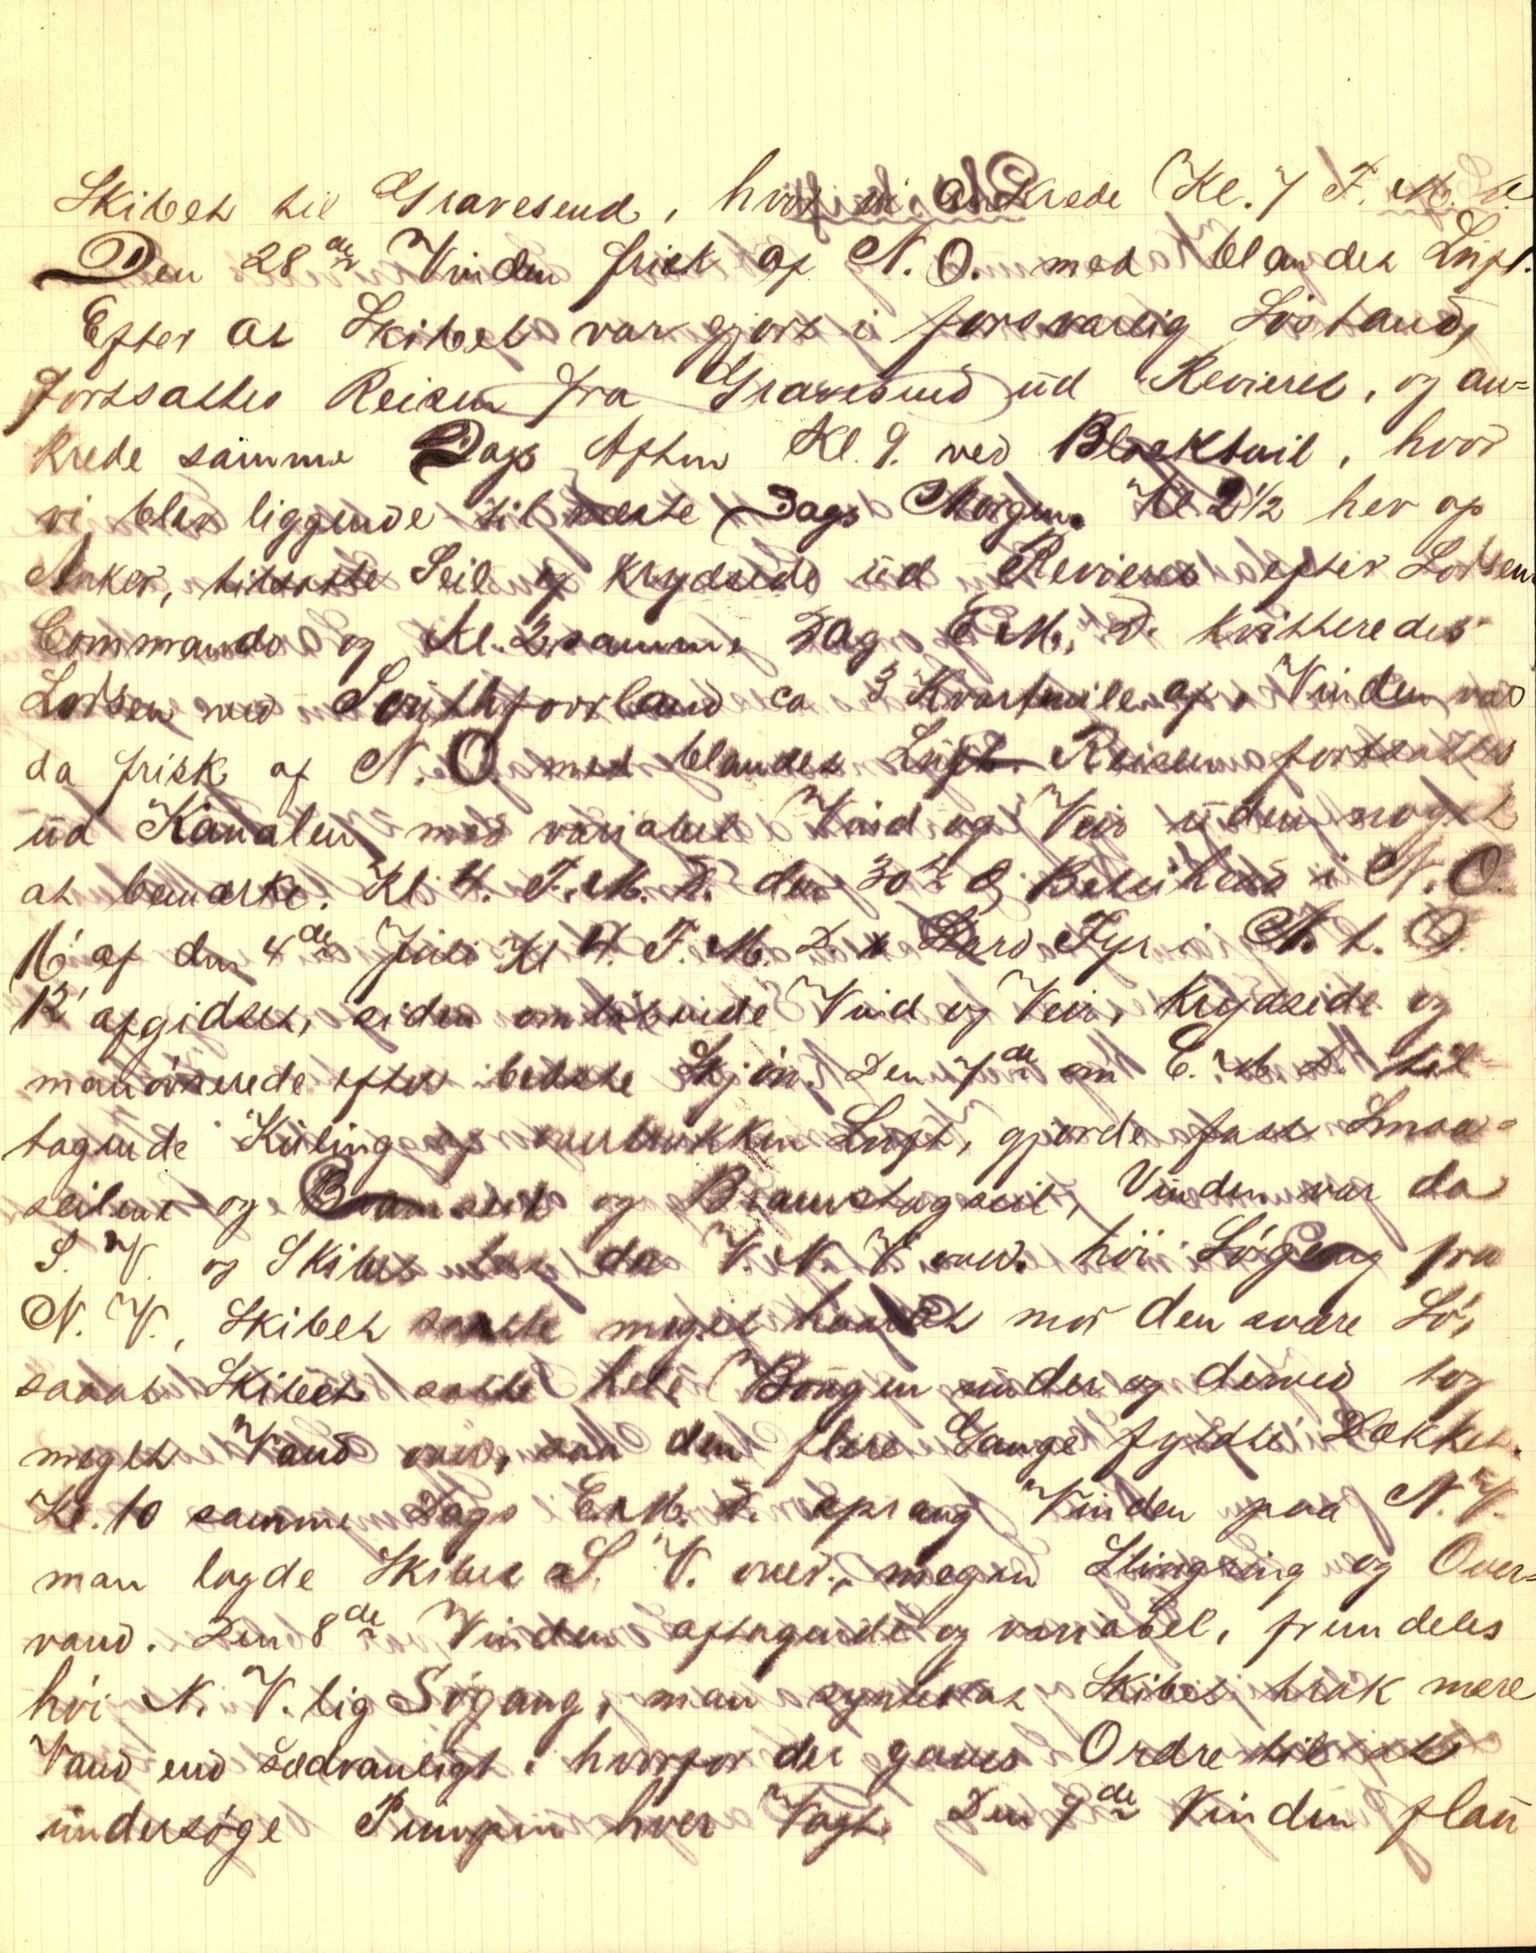 Skibet til Gravesend, hvor vi ankrede Kl. 7 F. M. D.
Den 28de Vinden frisk af N. O. med blandet Luft.
Efter at Skibet var gjort i forsvarlig Söstand,
fortsattes Reisen fra Gravesend ud Revieret, og an-
krede samme Dags Aften Kl. 9. ved Blacktail, hvor
vi blev liggende til næste Dags Morgen. Kl 2½ hev op
Anker, tilsatte Seil og krydsede ud Revieret efter Lodsens
Commando og Kl. 2 samme Dag E. M. D. kvitteredes
Lodsen ved Southforeland ca 3 Kvartmile af, Vinden var
da frisk af N. O. med blandet Luft. Reisen fortsattes
ud Kanalen med variabel Vind og Veir uden noget
at bemærke. Kl. 4. F. M. D. den 30te Beachhead i N. O.
af den 4de Juli Kl 4. F. M. D. Fyr i N. t. O.
12' afgidset, siden omlöbende Vind og Veir, krydsede og
manövrerede efter bedste Skjön. Den 7de om E. M. D. til-
tagende Kuling og overtrukken Luft, gjorde fast Smaa-
seilene og Bramseil og Bramstagseil, Vinden var da
S. V. og Skibet laa da V. N. V. over. höi Sögang fra
N. V., Skibet satte meget haardt mod den svære Sö,
saaat Skibet satte hele Bougen under og derved tog
meget Vand over, saa den flere Gange fyldte Dækket.
Kl. 10 samme Dags E. M. D. sprang Vinden paa N. V.
man lagde Skibet S. V. over, megen Slingring og Over-
vand. Den 8de Vinden aftagende og variabel, fremdeles
höi N. V. lig Sögang, man syntes at Skibet trak mere
Vand end sædvanligt, hvorfor der gaves Ordre til at
undersöge Pumpen hver Vagt. Den 9de Vinden flau